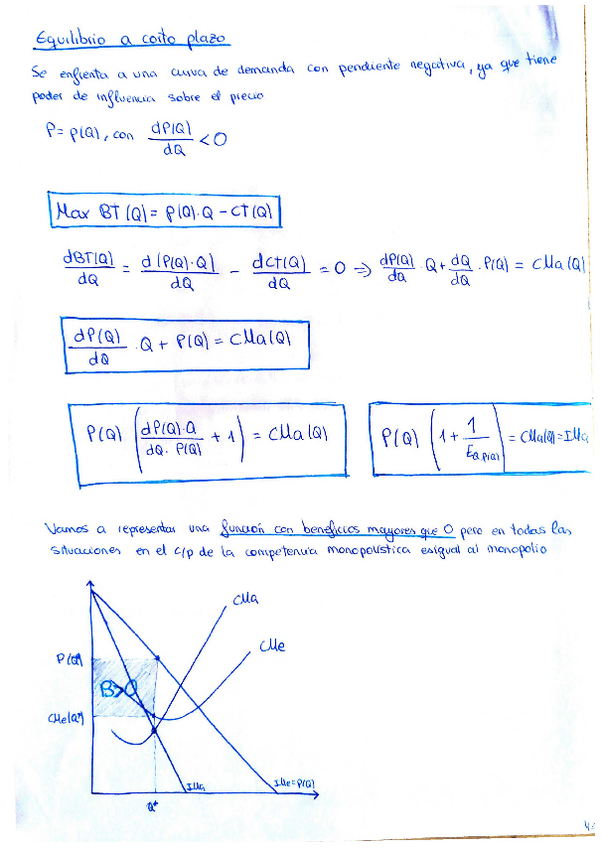 Equilibrio a corto plazo
Se enfrenta a una curva de demanda con pendiente negativa, ya que tiene
poder de influencia sobre el precio
P = P(Q), con dP(Q)/dQ < 0
Max BT(Q) = P(Q)·Q - CT(Q)
dBT(Q)/dQ = d(P(Q)·Q)/dQ - dCT(Q)/dQ = 0 => dP(Q)/dQ · Q + dQ/dQ · P(Q) = CMa(Q)
dP(Q)/dQ · Q + P(Q) = CMa(Q)
P(Q) (dP(Q)·Q/dQ·P(Q) + 1) = CMa(Q)
P(Q) (1 + 1/EQ,P(Q)) = CMa(Q) = IMa
Vamos a representar una función con beneficios mayores que 0 pero en todas las
situaciones en el c/p de la competencia monopolística es igual al monopolio
CMa
CMe
P(Q*)
B>0
CMe(Q*)
IMa
IMe=P(Q)
Q*